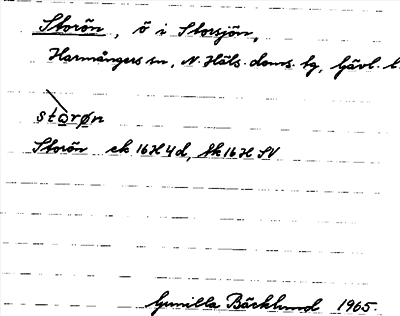 Storön, ö i Storsjön,
Harmångers sn, N. Häls. doms. tg, Gävl. l.
storøn
Storön ek 16H4d, tk 16H SV
Gunilla Bäcklund 1965.